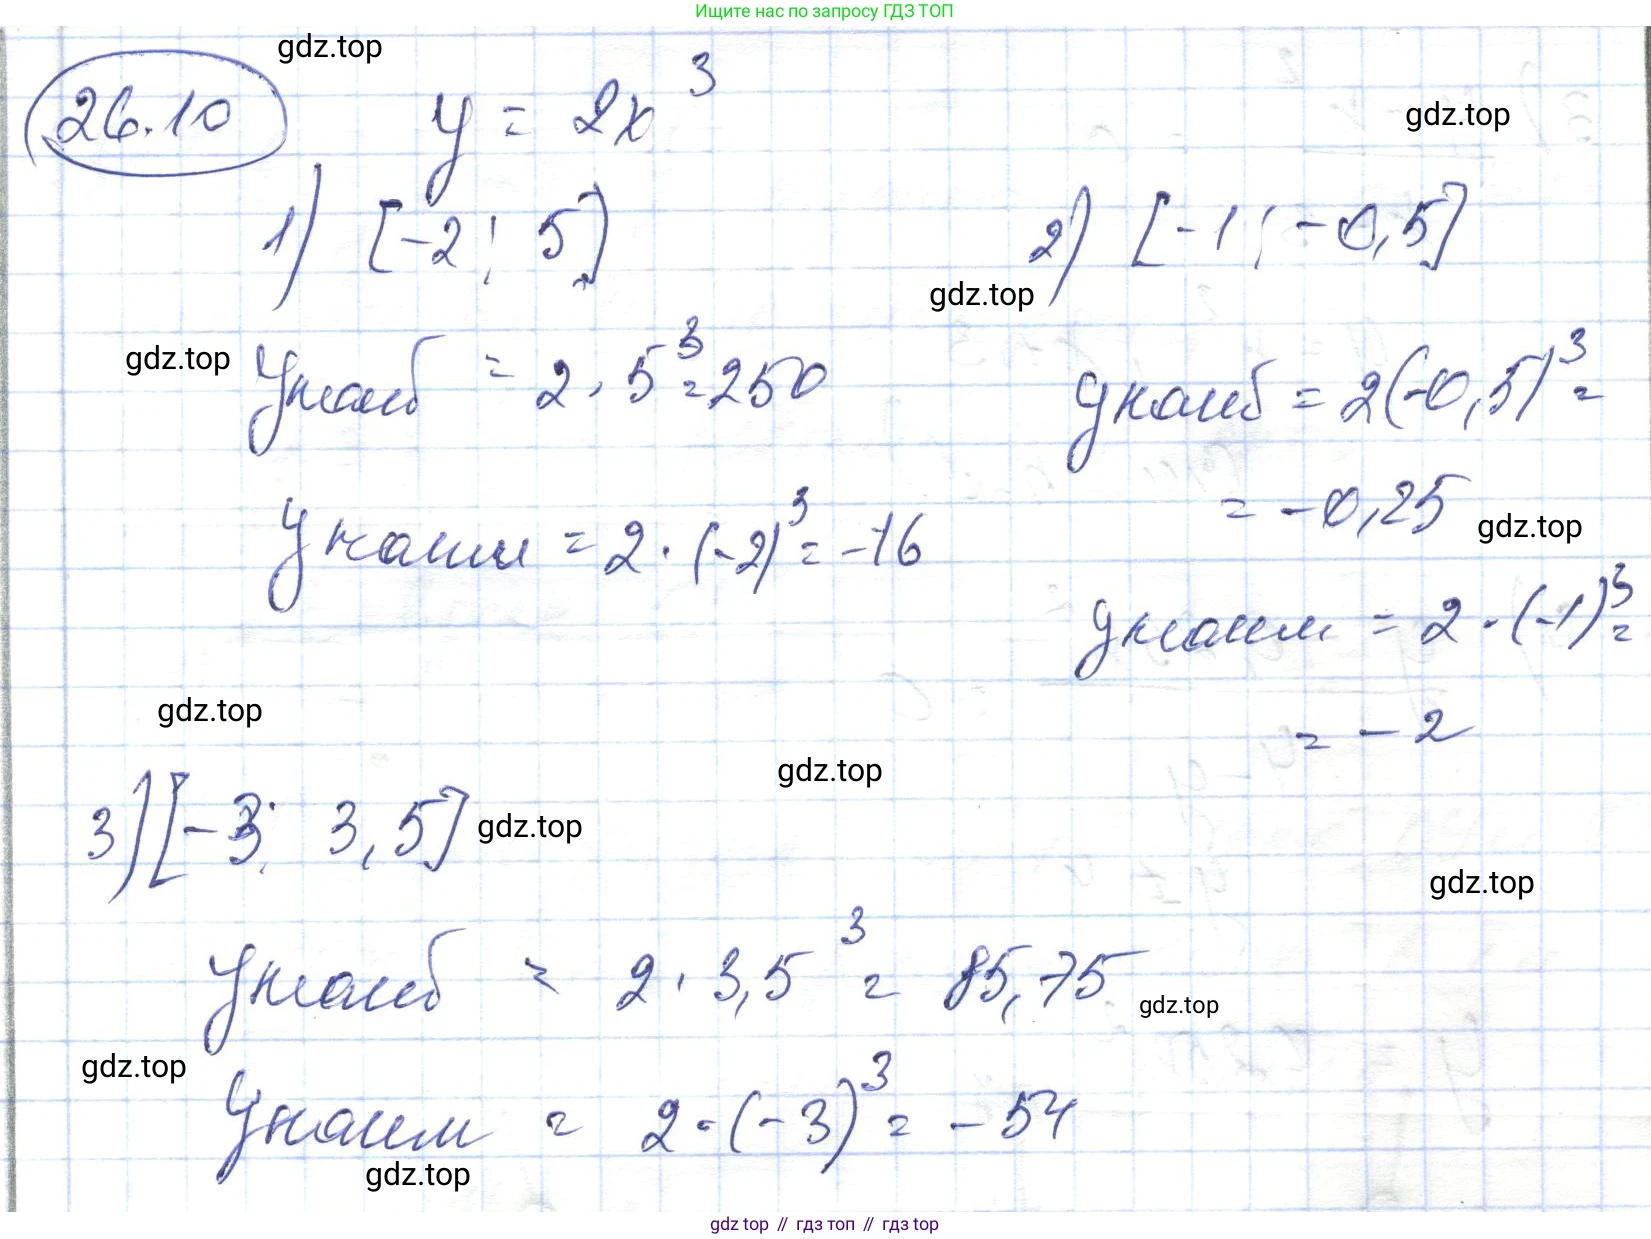 Ищите нас по запросу ГДЗ ТОП
gdz.top
26.10 y = 2x³
gdz.top
1) [-2; 5]
2) [-1; -0,5]
gdz.top
gdz.top
yнаиб = 2 · 5³ = 250
yнаиб = 2(-0,5)³ =
= -0,25
gdz.top
yнаим = 2 · (-2)³ = -16
yнаим = 2 · (-1)³ =
= -2
gdz.top
gdz.top
3) [-3; 3,5]
gdz.top
gdz.top
yнаиб = 2 · 3,5³ = 85,75
gdz.top
gdz.top
yнаим = 2 · (-3)³ = -54
gdz.top
gdz top // гдз топ // gdz top